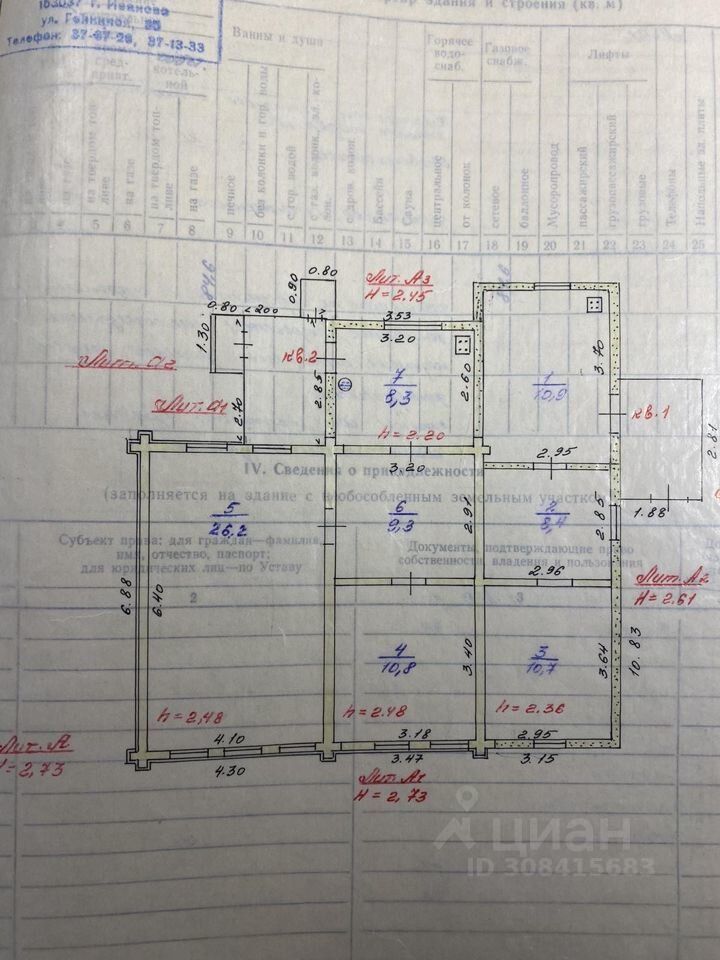 153037 г. Иваново
ул.
Телефон: 37-13-33
здания и строения (кв. м)
Ванны и душа
Горячее водо-снаб.
Газовое снабж.
Лифты
на твердом топ-ливе
на газе
на твердом топ-ливе
на газе
печное
без колонки и гор. воды
с гор. водой
Бассейн
Сауна
центральное
от колонок
сетевое
баллонное
Мусоропровод
пассажирский
грузопассажирский
грузовые
Телефоны
Напольные эл. плиты
5 6 7 8 9 10 11 12 13 14 15 16 17 18 19 20 21 22 23 24 25
0.80
0.90
Лит. А3
H = 2.45
0.80
200
1.30
3.53
3.20
кв.2
7
8,3
2.60
1
10,9
3.70
Лит. а2
Лит. а1
2.70
2.85
h = 2.20
кв.1
2.81
3.20
2.95
1.88
IV. Сведения о принадлежности
(заполняется на здание с необособленным земельным участком)
5
26,2
6
9,3
2.91
2
8,4
2.85
Субъект права: для граждан—фамилия,
имя, отчество, паспорт;
для юридических лиц—по Уставу
Документы, подтверждающие право
собственности, владения и пользования
2
3
6.88
6.40
2.96
Лит. А2
H = 2.61
4
10,8
3.40
3
10,7
3.64
10.83
h = 2,48
h = 2.48
h = 2.36
4.10
3.18
2.95
4.30
3.47
3.15
Лит. А
H = 2,73
Лит. А1
H = 2,73
циан
ID 308415683